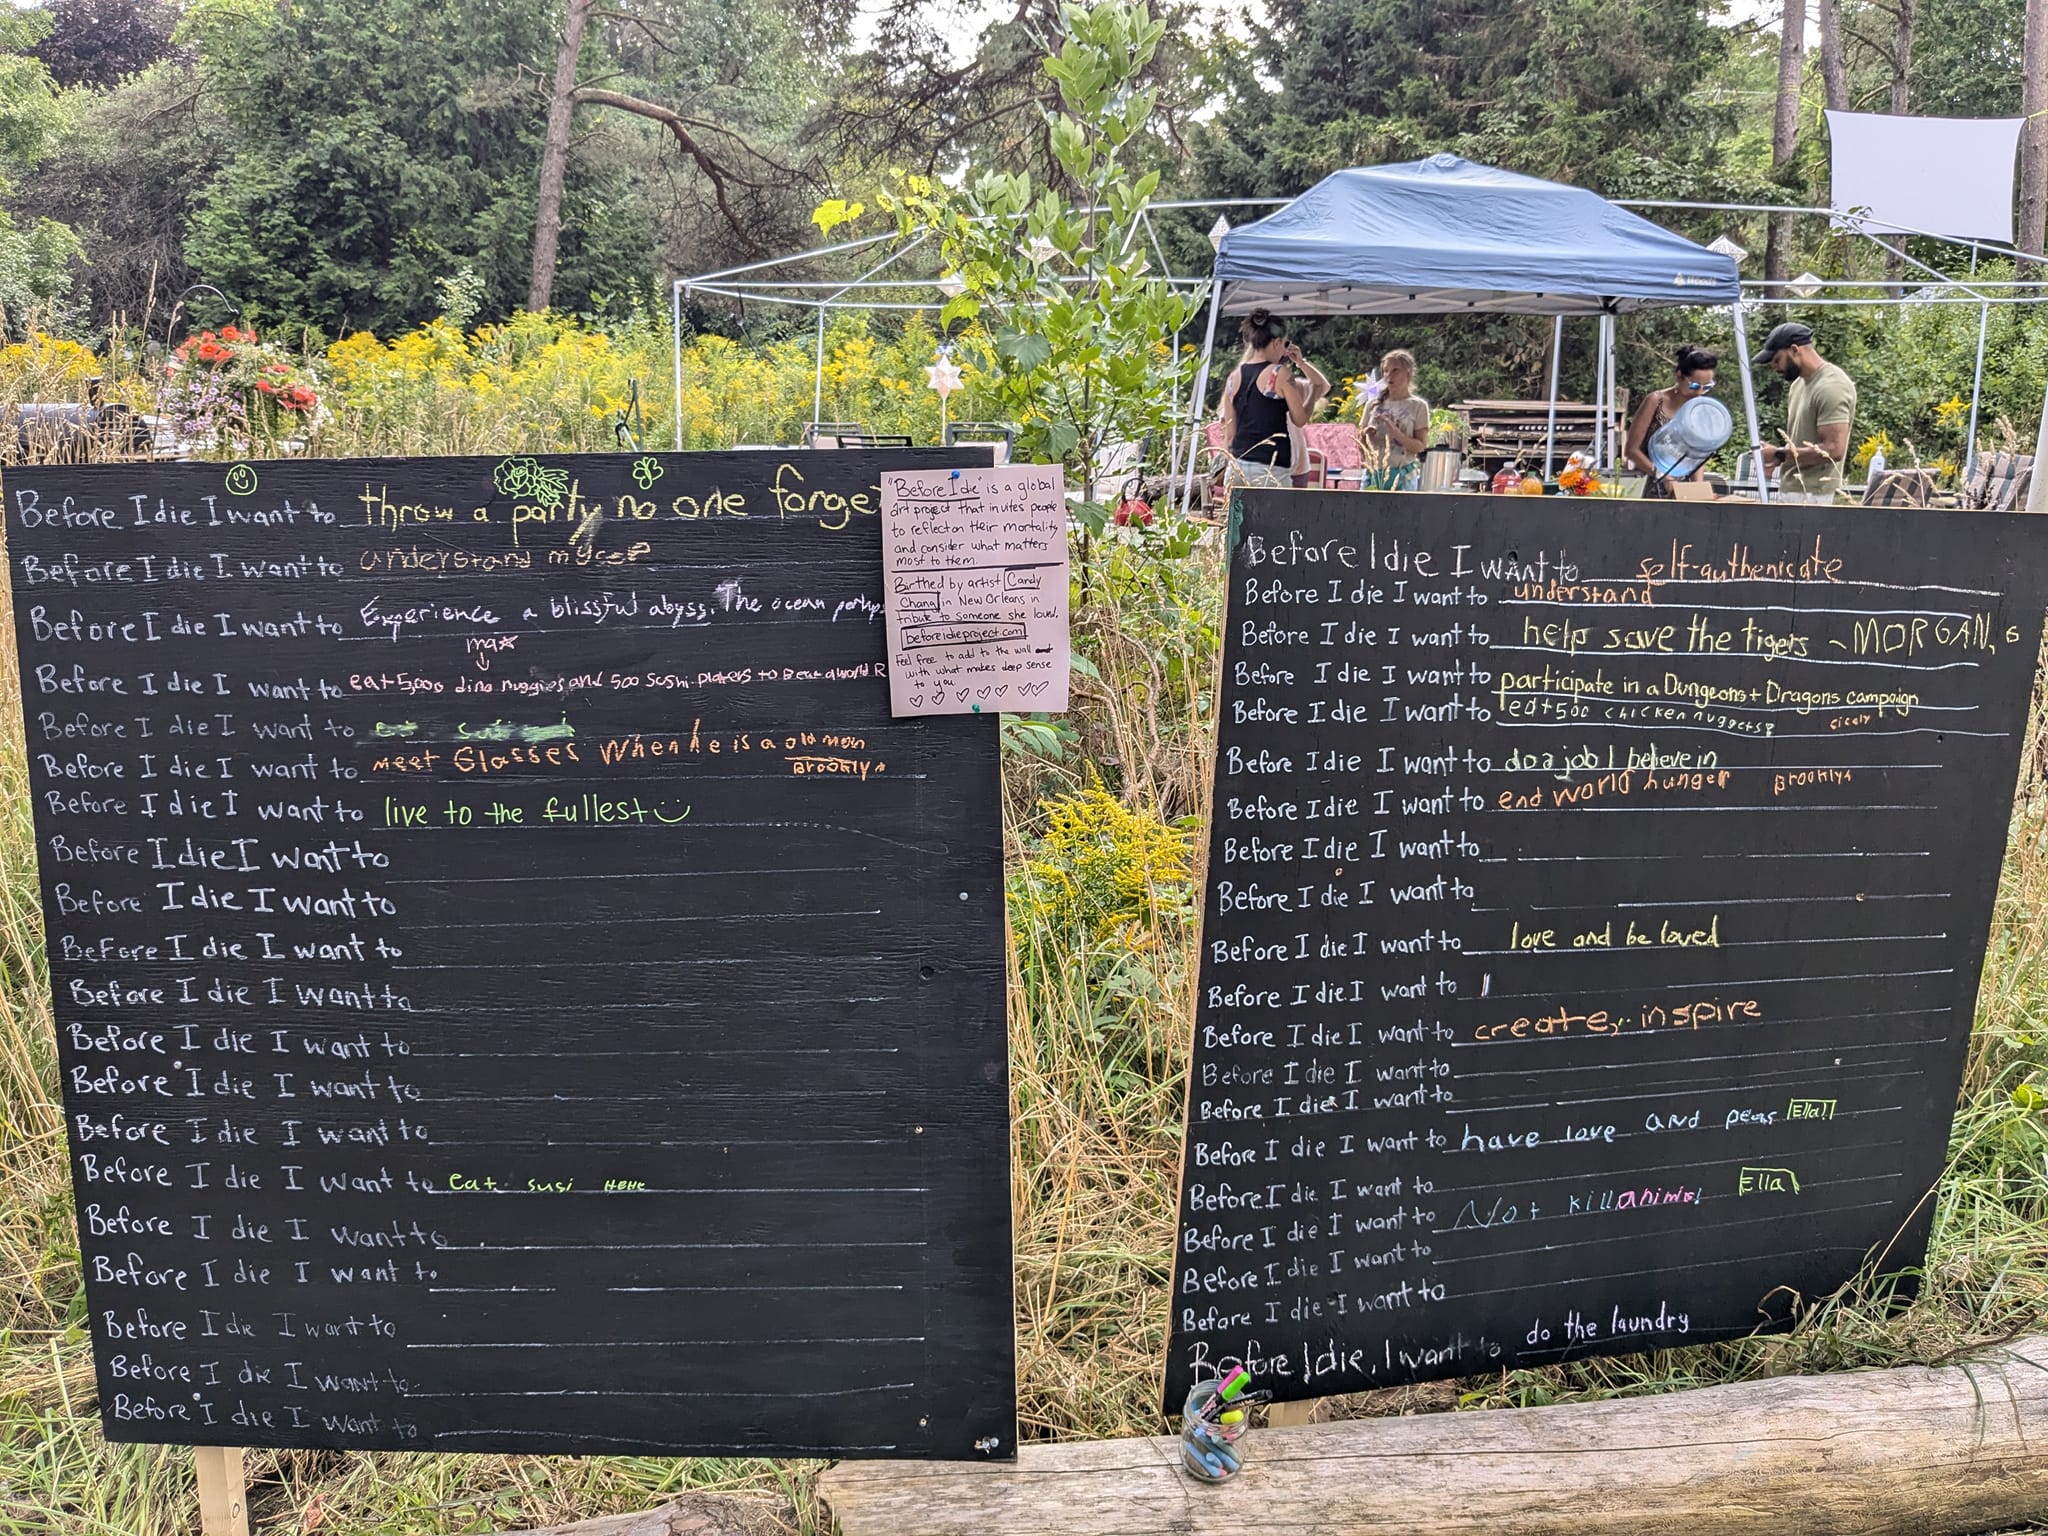 Before I die I want to throw a party no one forge
Before I die I want to understand myself
Before I die I want to Experience a blissful abyss. The ocean perhaps
max
Before I die I want to eat 5,000 dino nuggies and 500 sushi platers to Beat a world R
Before I die I want to
Before I die I want to meet Glasses When he is a old man
Brooklyn
Before I die I want to live to the fullest
Before I die I want to
Before I die I want to
Before I die I want to
Before I die I want to
Before I die I want to
Before I die I want to
Before I die I want to
Before I die I want to eat susi HEHE
Before I die I want to
Before I die I want to
Before I die I want to
Before I die I want to
Before I die I want to
"Before I die" is a global
art project that invites people
to reflect on their mortality
and consider what matters
most to them.
Birthed by artist Candy
Chang in New Orleans in
tribute to someone she loved.
beforeidieproject.com
Feel free to add to the wall
with what makes deep sense
to you
Before I die I want to self-authenicate
Before I die I want to understand
Before I die I want to help save the tigers ~MORGAN, 6
Before I die I want to participate in a Dungeons + Dragons campaign
Before I die I want to eat 500 chicken nuggets cicely
Before I die I want to do a job I believe in
Before I die I want to end world hunger Brooklyn
Before I die I want to
Before I die I want to
Before I die I want to love and be loved
Before I die I want to
Before I die I want to create, inspire
Before I die I want to
Before I die I want to
Before I die I want to have love and peas Ella!
Before I die I want to
Before I die I want to Not kill animls! Ella
Before I die I want to
Before I die I want to
Before I die, I want to do the laundry